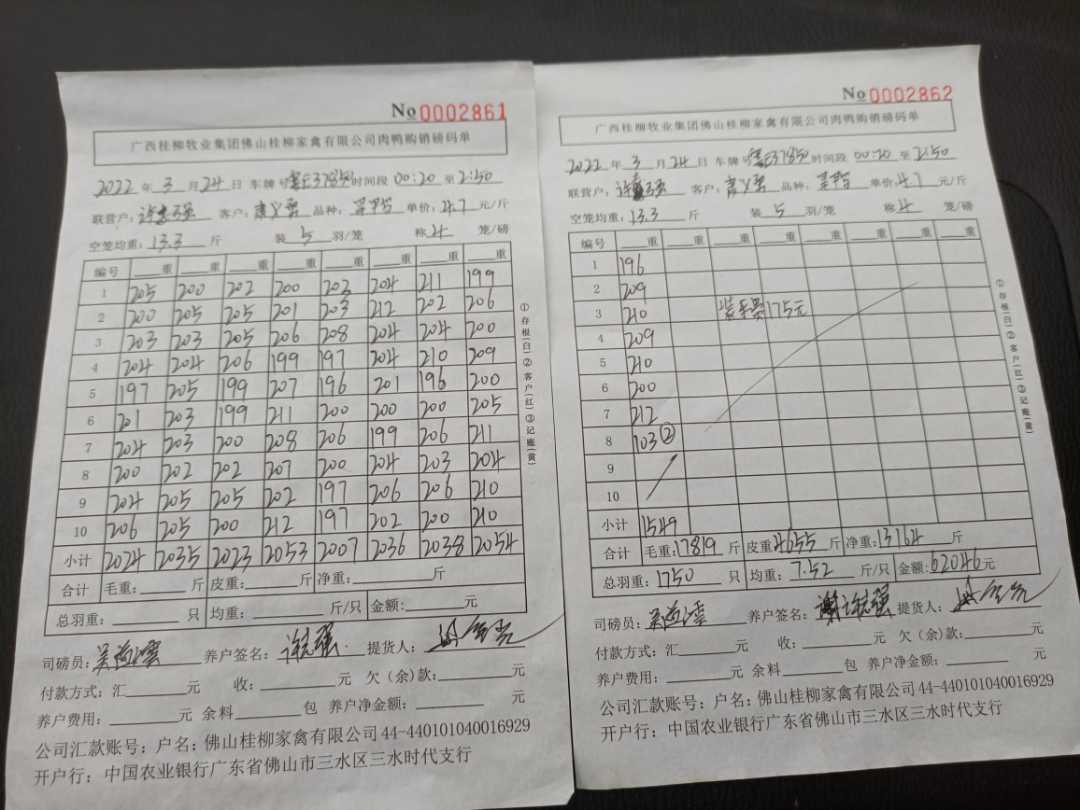 No 0002861
广西桂柳牧业集团佛山桂柳家禽有限公司肉鸭购销磅码单
2022年 3月24日 车牌号 3785 时间段 00:20 至 2:50
联营户: 客户: 品种: 单价: 4.7 元/斤
空笼均重: 13.3 斤 装 5 羽/笼 称 4 笼/磅
编号 重 重 重 重 重 重 重 重
1 205 200 202 200 202 204 211 199
2 200 205 205 201 203 212 202 206
3 203 203 205 206 208 204 204 200
4 204 204 206 199 197 204 210 209
5 197 205 199 207 196 201 196 200
6 201 203 199 211 200 200 200 205
7 204 203 200 208 206 199 206 211
8 200 202 202 207 200 204 203 204
9 204 205 205 202 197 206 206 210
10 206 205 200 212 197 202 200 210
小计 2024 2035 2023 2053 2007 2036 2038 2054
合计 毛重: 斤 皮重: 斤 净重: 斤
总羽重: 只 均重: 斤/只 金额: 元
司磅员: 养户签名: 提货人:
付款方式:汇 元 收: 元 欠(余)款: 元
养户费用: 元 余料 包 养户净金额: 元
公司汇款账号:户名:佛山桂柳家禽有限公司44-440101040016929
开户行:中国农业银行广东省佛山市三水区三水时代支行
①存根(白)②客户(红)③记账(黄)
No 0002862
广西桂柳牧业集团佛山桂柳家禽有限公司肉鸭购销磅码单
2022年 3月24日 车牌号 3785 时间段 00:20 至 2:50
联营户: 客户: 品种: 单价 4.7 元/斤
空笼均重: 13.3 斤 装 5 羽/笼 称 4 笼/磅
编号 重 重 重 重 重 重 重 重
1 196
2 209
3 210 175元
4 209
5 210
6 200
7 212
8 103 ②
9
10
小计 1549
合计 毛重: 17819 斤 皮重: 4655 斤 净重: 13164 斤
总羽重: 1750 只 均重: 7.52 斤/只 金额: 62046 元
司磅员: 养户签名: 提货人:
付款方式:汇 元 收: 元 欠(余)款: 元
养户费用: 元 余料 包 养户净金额: 元
公司汇款账号:户名:佛山桂柳家禽有限公司44-440101040016929
开户行:中国农业银行广东省佛山市三水区三水时代支行
①存根(白)②客户(红)③记账(黄)